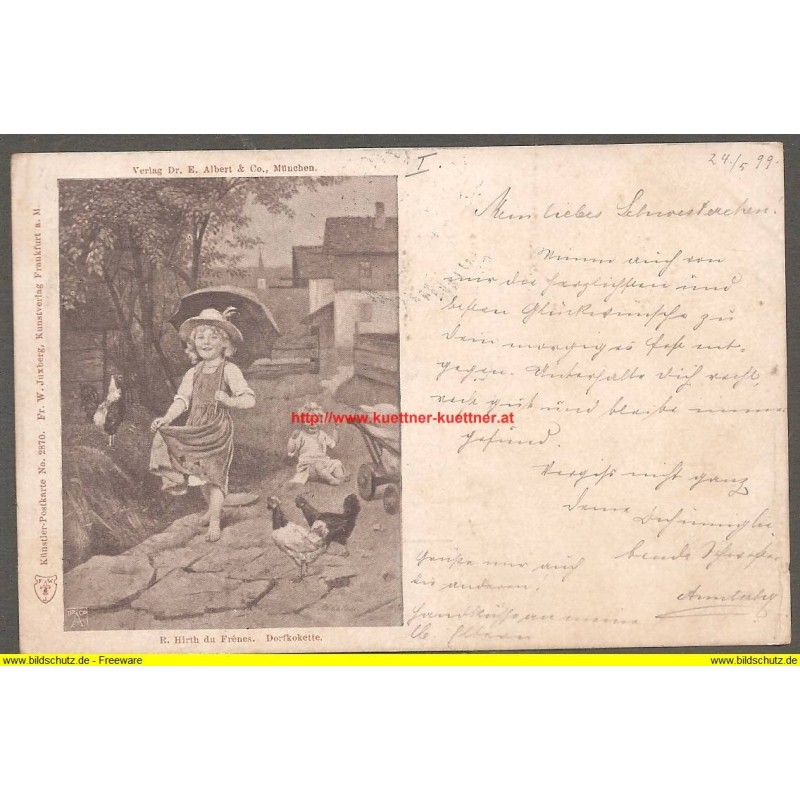 Verlag Dr. E. Albert & Co., München.
I.
24./5 99.
Künstler-Postkarte No. 2870. Fr. W. Juxberg, Kunstverlag Frankfurt a. M.
Mein liebes Schwesterchen!
Nimm auch von
mir die herzlichsten und
besten Glückwünsche zu
dem morgigen Fest ent-
gegen. Unterhalte Dich recht,
recht gut und bleibe immer
gesund
Vergiss nicht ganz
Deine Dich innig lie
bende Schwester
Grüße mir auch
die anderen.
Handküsse an meine
lb. Eltern
http://www.kuettner-kuettner.at
R. Hirth du Frênes. Dorfkokette.
www.bildschutz.de - Freeware
www.bildschutz.de